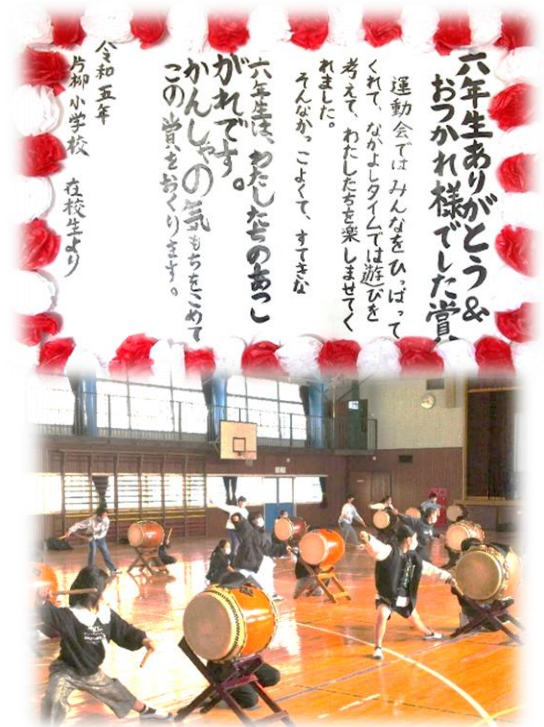 六年生ありがとう&
おつかれ様でした賞
運動会ではみんなをひっぱって
くれて、なかよしタイムでは遊びを
考えて、わたしたちを楽しませてく
れました。
そんなかっこよくて、すてきな
六年生は、わたしたちのあこ
がれです。
かんしゃの気もちをこめて
この賞をおくります。
令和五年
片柳小学校 在校生より